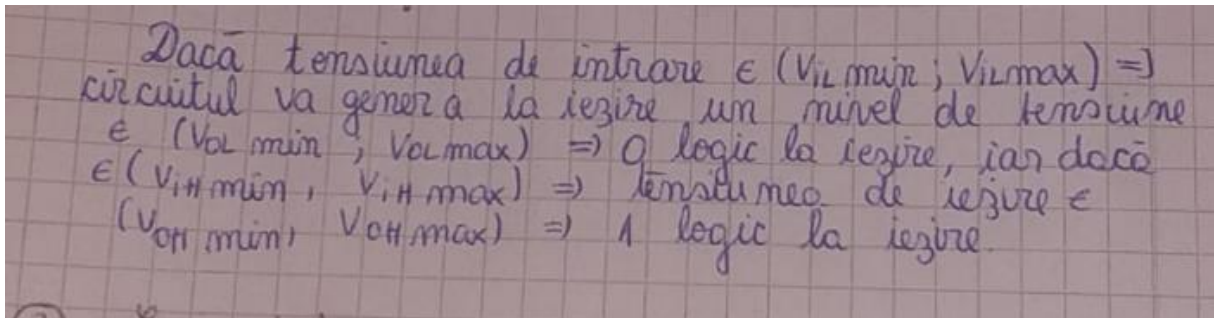 Dacă tensiunea de intrare ∈ (VIL min ; VILmax) =>
circuitul va genera la ieșire un nivel de tensiune
∈ (VOL min , VOLmax) => 0 logic la ieșire, iar dacă
∈ (ViH min , ViH max) => tensiunea de ieșire ∈
(VOH min, VOH max) => 1 logic la ieșire.